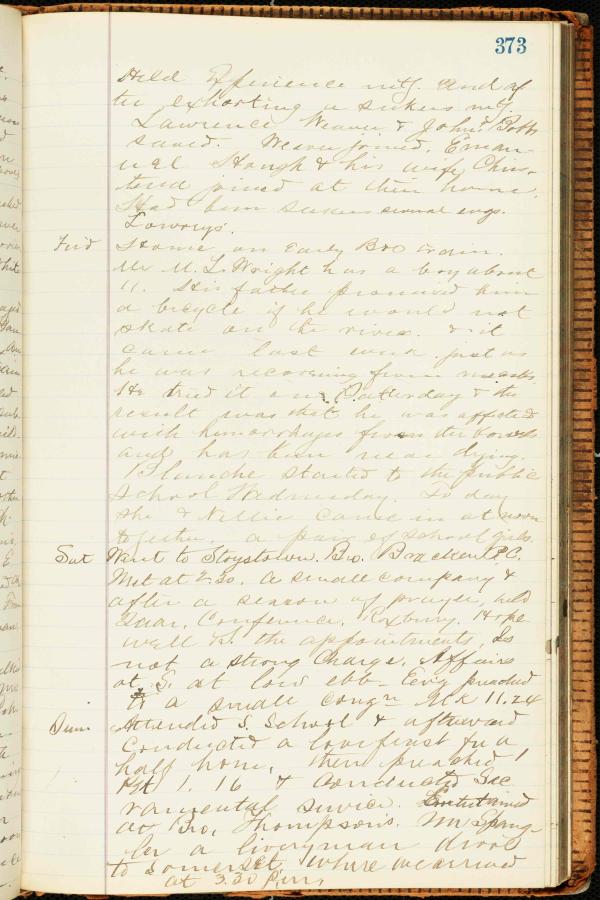 373
Held Experience mtg. and af
ter exhorting a seekers mtg.
Lawrence Weaver & John Bobbs
saved. Weaver joined. Eman-
uel Haugh & his wife Chris-
tena joined at their home.
Had been seekers several evgs.
Lowrys.
Frid Home on early B&O train.
Mr M. L. Wright has a boy about
11. His father promised him
a bicycle if he would not
skate on the river. & it
came last week just as
he was recovering from measles.
He tried it on Satterday & the
result was that he was affected
with hemorrhages from the bowels
and has been near dying.
Blanche started to the public
school Wednesday. To day
she & Nellie came in at noon
together. a pair of school girls.
Sat Went to Stoystown. Bro. Bracken P.C.
Met at 2.30. a small company &
after a season of prayer, held
Quar. Conference. Roxbury, Hope
well &c. the appointments. Is
not a strong Charge. Affairs
at S. at low ebb. Eve'g preached
to a small congn Mk 11.24
Sun Attended S. School & afterward
Conducted a lovefeast for a
half hour, then preached 1
Pet 1. 16 & Conducted Sac
ramental service. Entertained
at Bro. Thompson's. Mr Spang-
ler a liveryman drove
to Somerset, where we arrived
at 3.30 P.m.